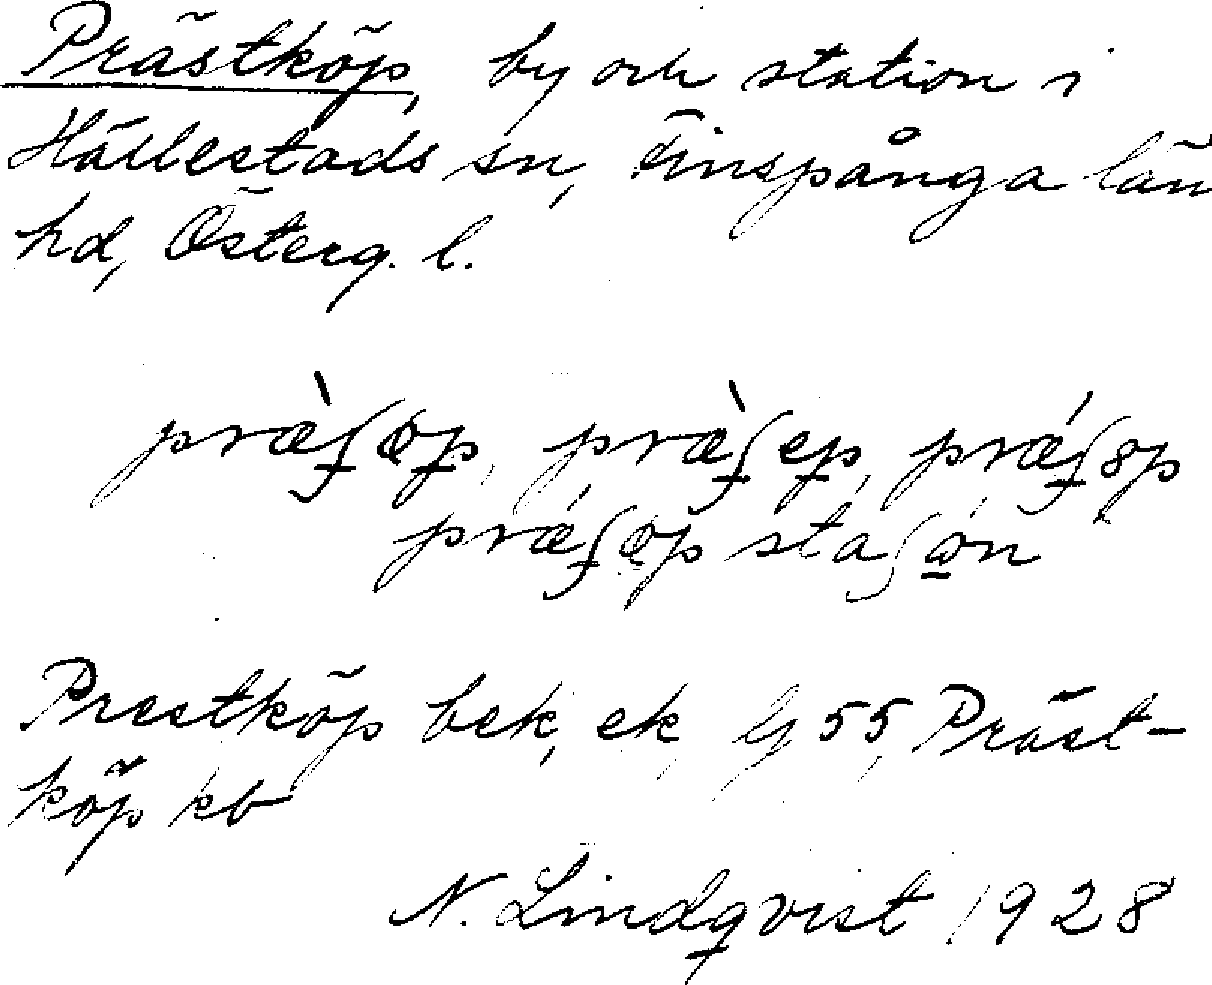 Prästköp, by och station i
Hällestads sn, Finspånga län
hd, Österg. l.
præ̀ʃøp, præ̀ʃep, prǽʃɵp
prǽʃøp staʃón
Prestköp bek, ek, lj 55, Präst-
köp kb
N. Lindqvist 1928